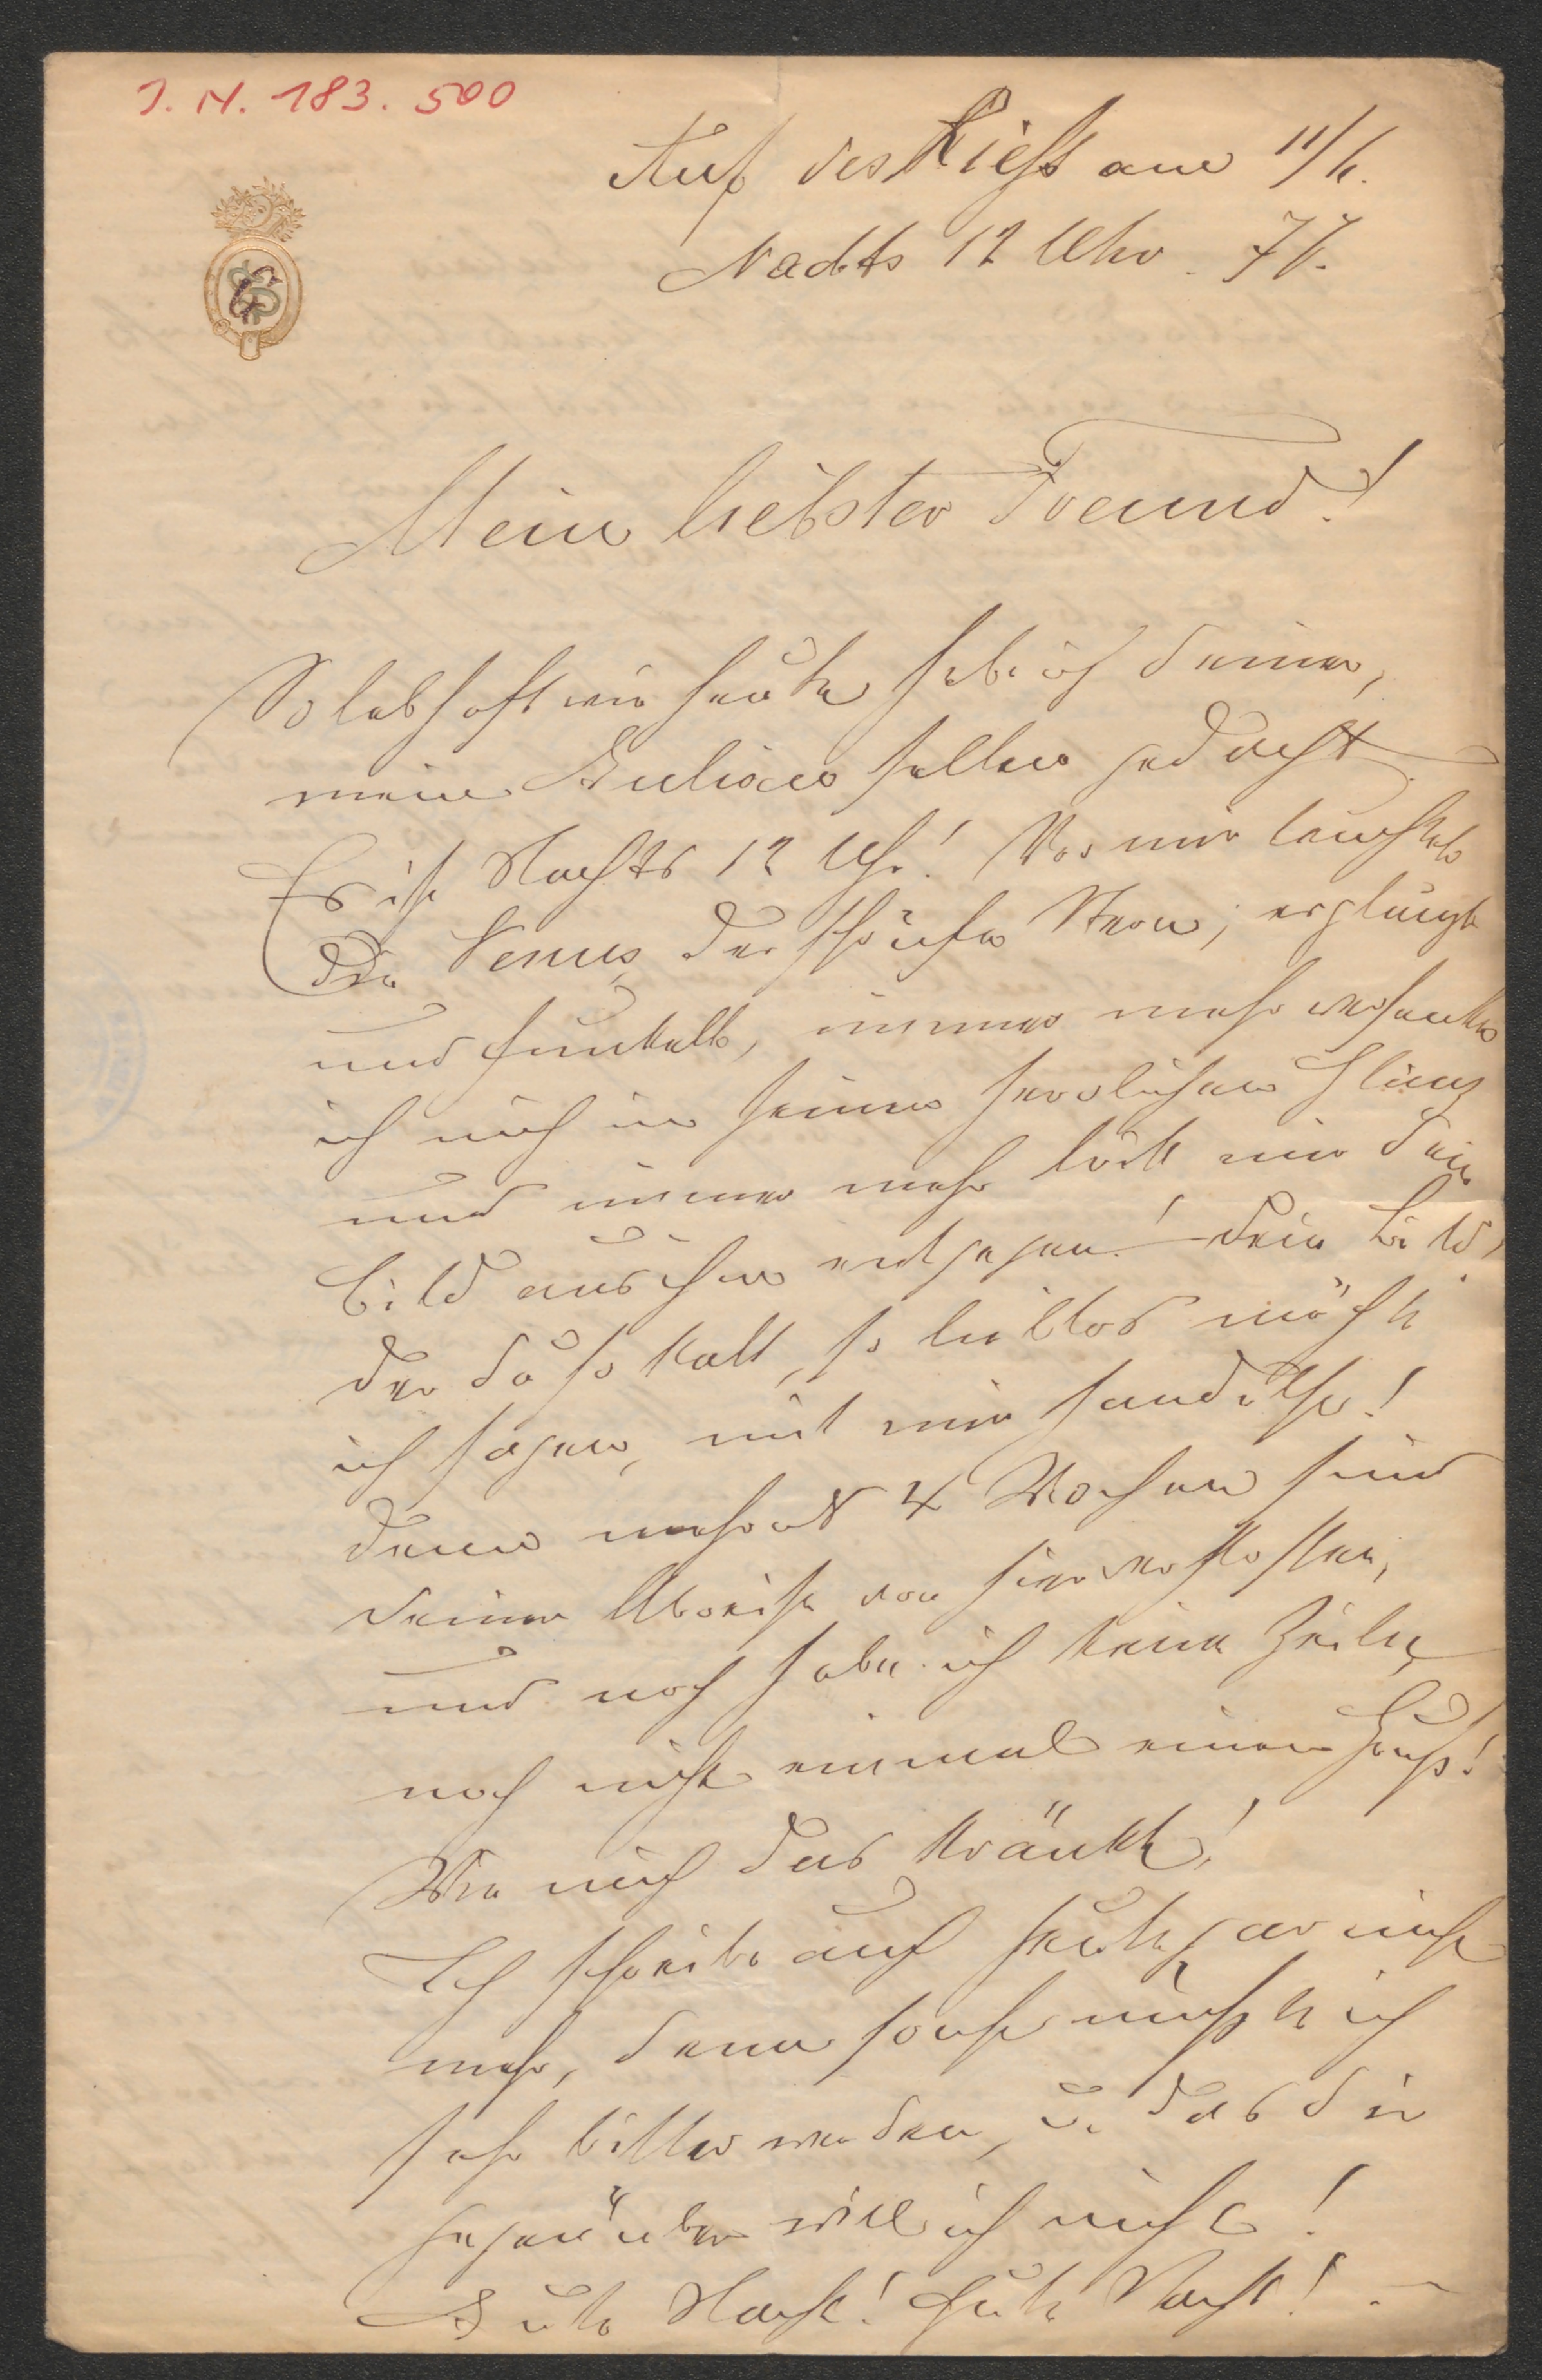 J. N. 183.500
Auf des Riess am 11/6.
Nachts 12 Uhr. 77.
Mein liebster Freund!
So lebhaft wie heute habe ich deiner,
mein selten gedacht.
Es ist Nachts 12 Uhr! Vor mir leuchtet
die Venus, der schönste Stern; er glänzt
und funkelt, immer mehr versenke
ich mich in seinen herrlichen Glanz
und immer mehr tritt mir dein
Bild aus ihm entgegen! dein Bild,
der du so kalt, so lieblos möcht
ich sagen, mit mir handeltest!
denn mehr als 4 Wochen sind
deiner Abreise von hier verflossen,
und noch habe ich keine Zeile,
noch nicht einmal einen Gruß!
Wie mich das kränkt!
Ich schreibe auch heute gar nicht
mehr, denn sonst müßte ich
sehr bitter werden, u. das dir
gegenüber will ich nicht!
Gute Nacht! Gute Nacht! –